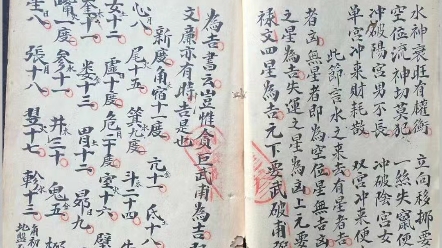 水神衰旺有權衡 立向移挪要
空位流神切莫犯 一絲失竄便
冲破陽宮男不長 冲破陰宮女
單宮冲來財耗散 双宮冲來便
此節言水之來去有星者吉
者凶無星者即為空位星無吉
之星為吉失運之星為凶上元要
祿文四星為吉元下要武破
為吉書云豈惟貪巨武甫為吉
文廉亦有時吉是也
新度角宿十一度 亢十一 氐十八
心八 尾十五 箕九度 斗二十四
女十二 虛十度 危二十度 室十六 壁
奎十一 婁十三 胃十二 昴九
參十一 井三十 鬼五
張十八 翌十七 軫十三